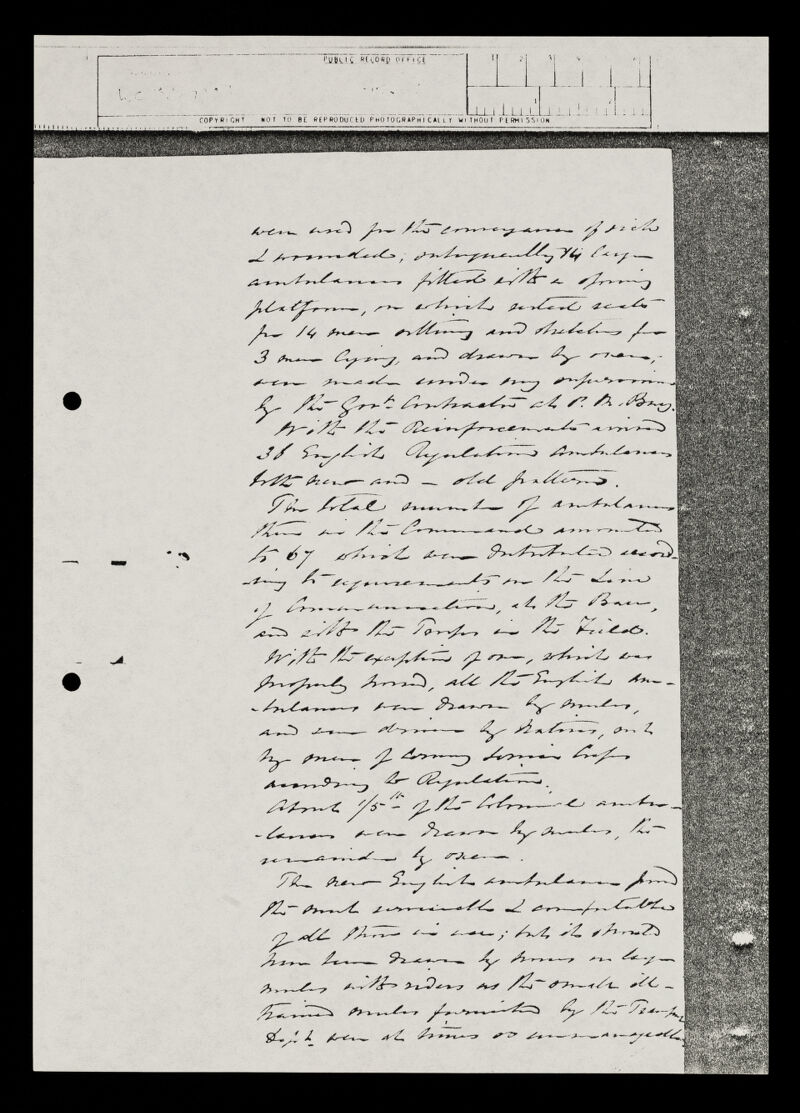 PUBLIC RECORD OFFICE
COPYRIGHT NOT TO BE REPRODUCED PHOTOGRAPHICALLY WITHOUT PERMISSION
were used for the conveyance of sick
& wounded; subsequently 14 large
ambulances fitted with a spring
platform, on which rested seats
for 14 men sitting and stretchers for
3 men lying, and drawn by oxen,
were made under my supervision
by the Govt. Contractor at P. M. Burg.
With the Reinforcements arrived
38 English Regulation Ambulances
both new and – old patterns.
The total number of ambulances
then in the Command amounted
to 67 which were distributed accord-
-ing to requirements on the Line
of Communication, at the Base,
and with the Troops in the Field.
With the exception of one, which was
properly horsed, all the English am-
-bulances were drawn by mules,
and were driven by Natives, not
by men of Army Service Corps
according to Regulation.
About 1/5th of the Colonial ambu-
-lances were drawn by mules, the
remainder by oxen.
The new English ambulance proved
the most serviceable & comfortable
of all those in use; but it should
have been drawn by horses or large
mules with riders as the small ill-
trained mules furnished by the Transport
Dept. were at times so unmanageable